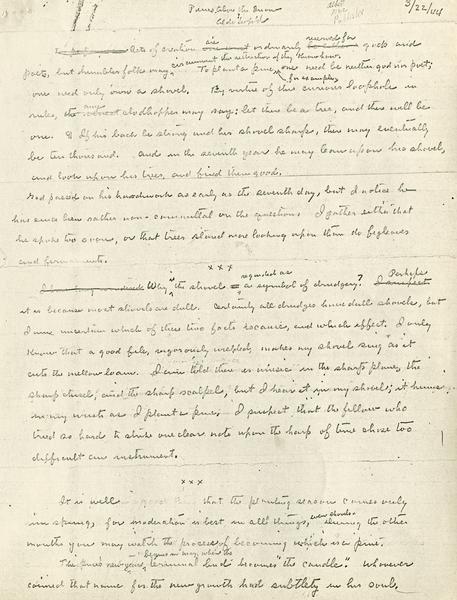 Pines above the Snow
Aldo Leopold
3/22/44
Acts of creation are ordinarily reserved for gods and
poets, but humbler folk may circumvent this restriction if they know how.
To plant a pine, for example, one need be neither god nor poet;
one need only own a shovel. By virtue of this curious loophole in
rules, any clodhopper may say: let there be a tree, and there will be
one. If his back be strong and his shovel sharp, there may eventually
be ten thousand. And in the seventh year he may lean upon his shovel,
and look upon his trees, and find them good.
God passed on his handiwork as early as the seventh day, but I notice he
has since been rather non-committal on the question. I gather either that
he spoke too soon, or that trees stand more looking upon than do figleaves
and firmaments.
x x x
Why is the shovel regarded as a symbol of drudgery? Perhaps
it is because most shovels are dull. Certainly all drudges have dull shovels, but
I am uncertain which of these two facts is cause, and which effect. I only
know that a good file, vigorously wielded, makes my shovel sing as it
cuts the mellow loam. I am told there is music in the sharp plane, the
sharp chisel, and the sharp scalpel, but I hear it in my shovel; it hums
in my wrists as I plant a pine. I suspect that the fellow who
tried so hard to strike one clear note upon the harp of time chose too
difficult an instrument.
x x x
It is well that the planting season comes only
in spring, for moderation is best in all things, even shovels. During the other
months you may watch the process of becoming which is a pine.
The pine's new year begins in May, when the terminal bud becomes "the candle." Whoever
coined that name for the new growth had subtlety in his soul.